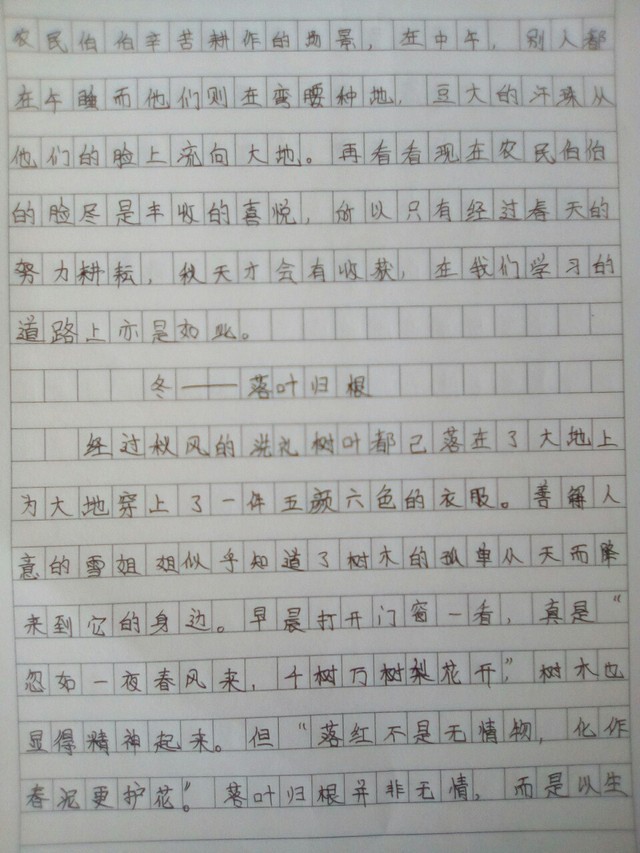 农民伯伯辛苦耕作的场景，在中午，别人都
在午睡而他们则在弯腰种地，豆大的汗珠从
他们的脸上流向大地。再看看现在农民伯伯
的脸尽是丰收的喜悦，所以只有经过春天的
努力耕耘，秋天才会有收获，在我们学习的
道路上亦是如此。
冬——落叶归根
经过秋风的洗礼树叶都已落在了大地上
为大地穿上了一件五颜六色的衣服。善解人
意的雪姐姐似乎知道了树木的孤单从天而降
来到它的身边。早晨打开门窗一看，真是“
忽如一夜春风来，千树万树梨花开，”树木也
显得精神起来。但“落红不是无情物，化作
春泥更护花”。落叶归根并非无情，而是以生